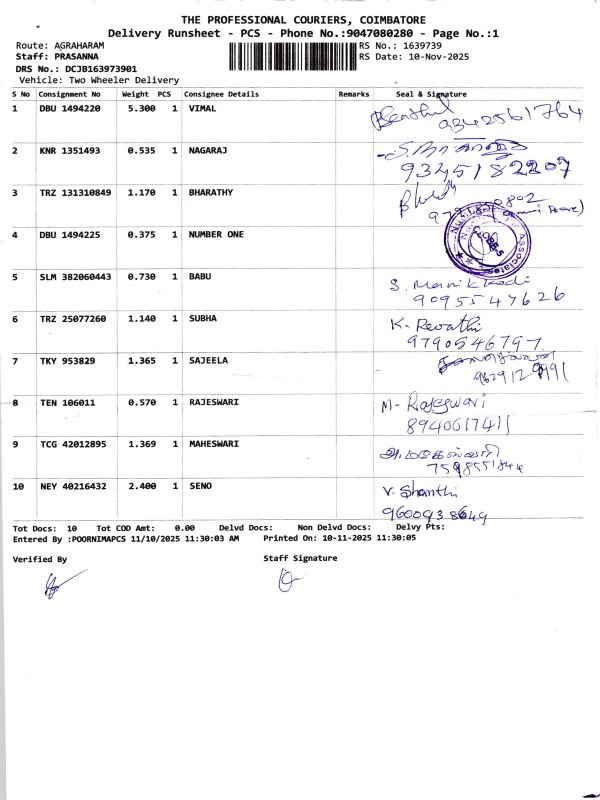 THE PROFESSIONAL COURIERS, COIMBATORE
Delivery Runsheet - PCS - Phone No.:9047080280 - Page No.:1
Route: AGRAHARAM RS No.: 1639739
Staff: PRASANNA RS Date: 10-Nov-2025
DRS No.: DCJB163973901
Vehicle: Two Wheeler Delivery
S No Consignment No Weight PCS Consignee Details Remarks Seal & Signature
1 DBU 1494220 5.300 1 VIMAL
9342561764
2 KNR 1351493 0.535 1 NAGARAJ
9345182207
3 TRZ 131310849 1.170 1 BHARATHY
4 DBU 1494225 0.375 1 NUMBER ONE
Associates
5 SLM 382060443 0.730 1 BABU
S. Manikkodi
9095547626
6 TRZ 25077260 1.140 1 SUBHA
K. Revathi
9790546797
7 TKY 953829 1.365 1 SAJEELA
8 TEN 106011 0.570 1 RAJESWARI
M- Rajeswari
8940617411
9 TCG 42012895 1.369 1 MAHESWARI
அ. மகேஸ்வரி
7598551844
10 NEY 40216432 2.400 1 SENO
V. Shanthi
9600938649
Tot Docs: 10 Tot COD Amt: 0.00 Delvd Docs: Non Delvd Docs: Delvy Pts:
Entered By :POORNIMAPCS 11/10/2025 11:30:03 AM Printed On: 10-11-2025 11:30:05
Verified By Staff Signature